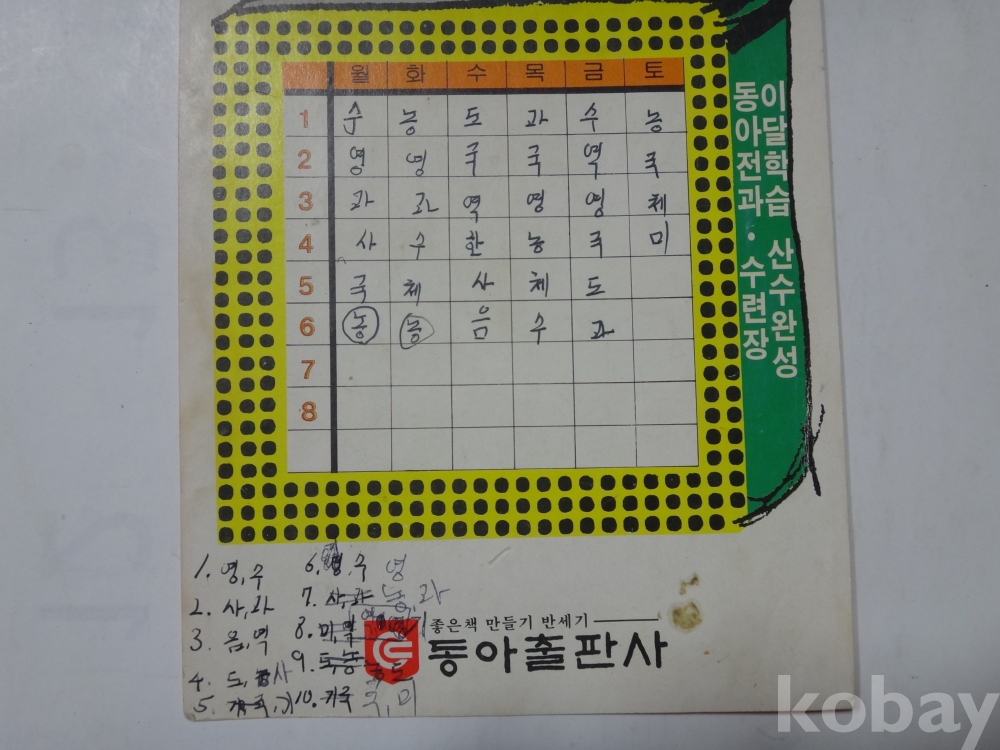 월 화 수 목 금 토
1 수 농 도 과 수 농
2 영 영 국 국 역 국
3 과 과 역 영 영 체
4 사 수 한 농 국 미
5 국 체 사 체 도
6 농 농 음 수 과
7
8
이달학습 산수완성
동아전과·수련장
1. 영, 수
2. 사, 과
3. 음, 역
4. 도, 사
5.
6. 수 영
7. 사, 과 농 과
8.
9.
10. 국, 미
좋은책 만들기 반세기
동아출판사
kobay